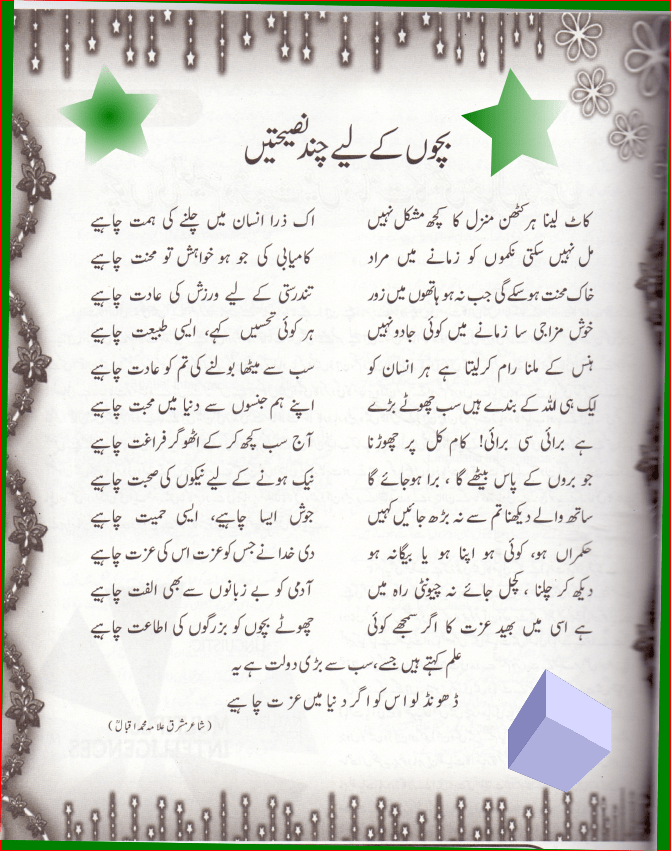 بچوں کے لیے چند نصیحتیں
کاٹ لینا ہر کٹھن منزل کا کچھ مشکل نہیں اک ذرا انسان میں چلنے کی ہمت چاہیے
مل نہیں سکتی نکموں کو زمانے میں مراد کامیابی کی جو ہو خواہش تو محنت چاہیے
خاک محنت ہو سکے گی جب نہ ہو ہاتھوں میں زور تندرستی کے لیے ورزش کی عادت چاہیے
خوش مزاجی سا زمانے میں کوئی جادو نہیں ہر کوئی تحسیں کہے، ایسی طبیعت چاہیے
ہنس کے ملنا رام کر لیتا ہے ہر انسان کو سب سے میٹھا بولنے کی تم کو عادت چاہیے
ایک ہی اللہ کے بندے ہیں سب چھوٹے بڑے اپنے ہم جنسوں سے دنیا میں محبت چاہیے
ہے برائی سی برائی! کام کل پر چھوڑنا آج سب کچھ کر کے اٹھو گر فراغت چاہیے
جو بروں کے پاس بیٹھے گا، برا ہو جائے گا نیک ہونے کے لیے نیکوں کی صحبت چاہیے
ساتھ والے دیکھنا تم سے نہ بڑھ جائیں کہیں جوش ایسا چاہیے، ایسی حمیت چاہیے
حکمراں ہو، کوئی ہو اپنا ہو یا بیگانہ ہو دی خدا نے جس کو عزت اس کی عزت چاہیے
دیکھ کر چلنا، کچل جائے نہ چیونٹی راہ میں آدمی کو بے زبانوں سے بھی الفت چاہیے
ہے اسی میں بھید عزت کا اگر سمجھے کوئی چھوٹے بچوں کو بزرگوں کی اطاعت چاہیے
علم کہتے ہیں جسے، سب سے بڑی دولت ہے یہ
ڈھونڈ لو اس کو اگر دنیا میں عزت چاہیے
(شاعر مشرق علامہ محمد اقبالؒ)